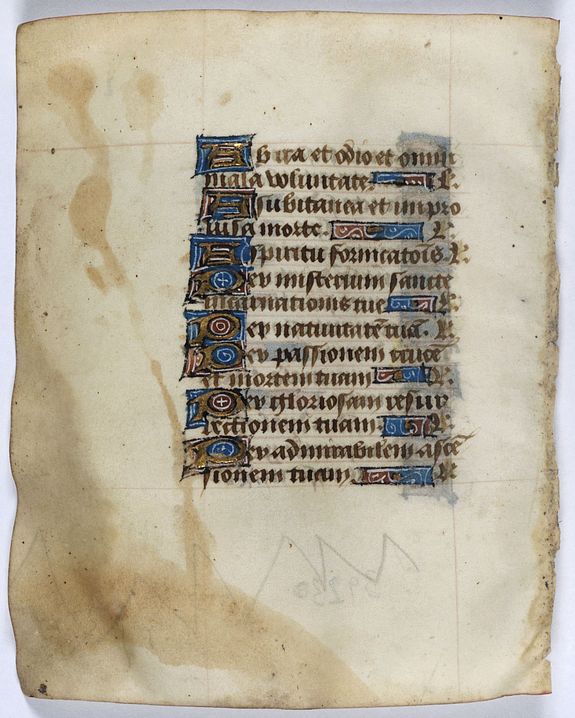 Ab ira et odio et omni
mala voluntate. l.
A subitanea et impro
uisa morte. l.
A spiritu fornicatõis l.
Per misterium sancte
incarnationis tue l.
Per natiuitatē tuā. l.
Per passionem crucē
et mortem tuam l.
Per gloriosam resur
rectionem tuam. l.
Per admirabilem ascē
sionem tuam l.